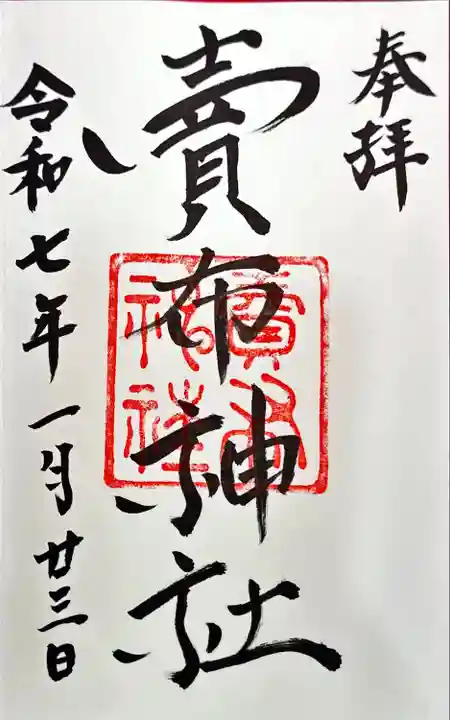 奉拝
賣布神社
賣布
神社
令和七年一月廿三日